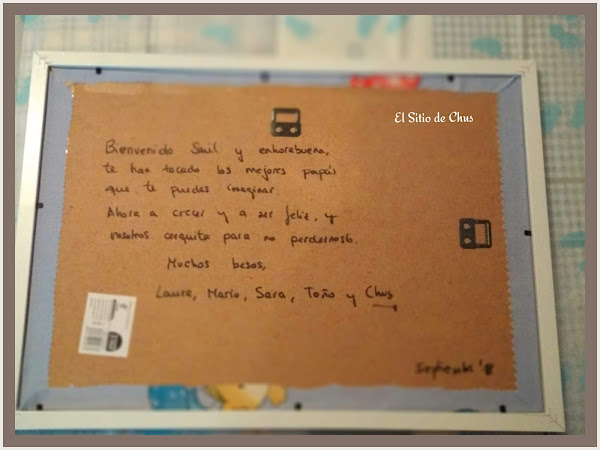 El Sitio de Chus
Bienvenido Saúl y enhorabuena,
te han tocado los mejores papás
que te puedas imaginar
Ahora a crecer y a ser feliz, y
nosotros cerquita para no perdernoslo.
Muchos besos,
Laura, Mario, Sara, Toño y Chus
Septiembre '18